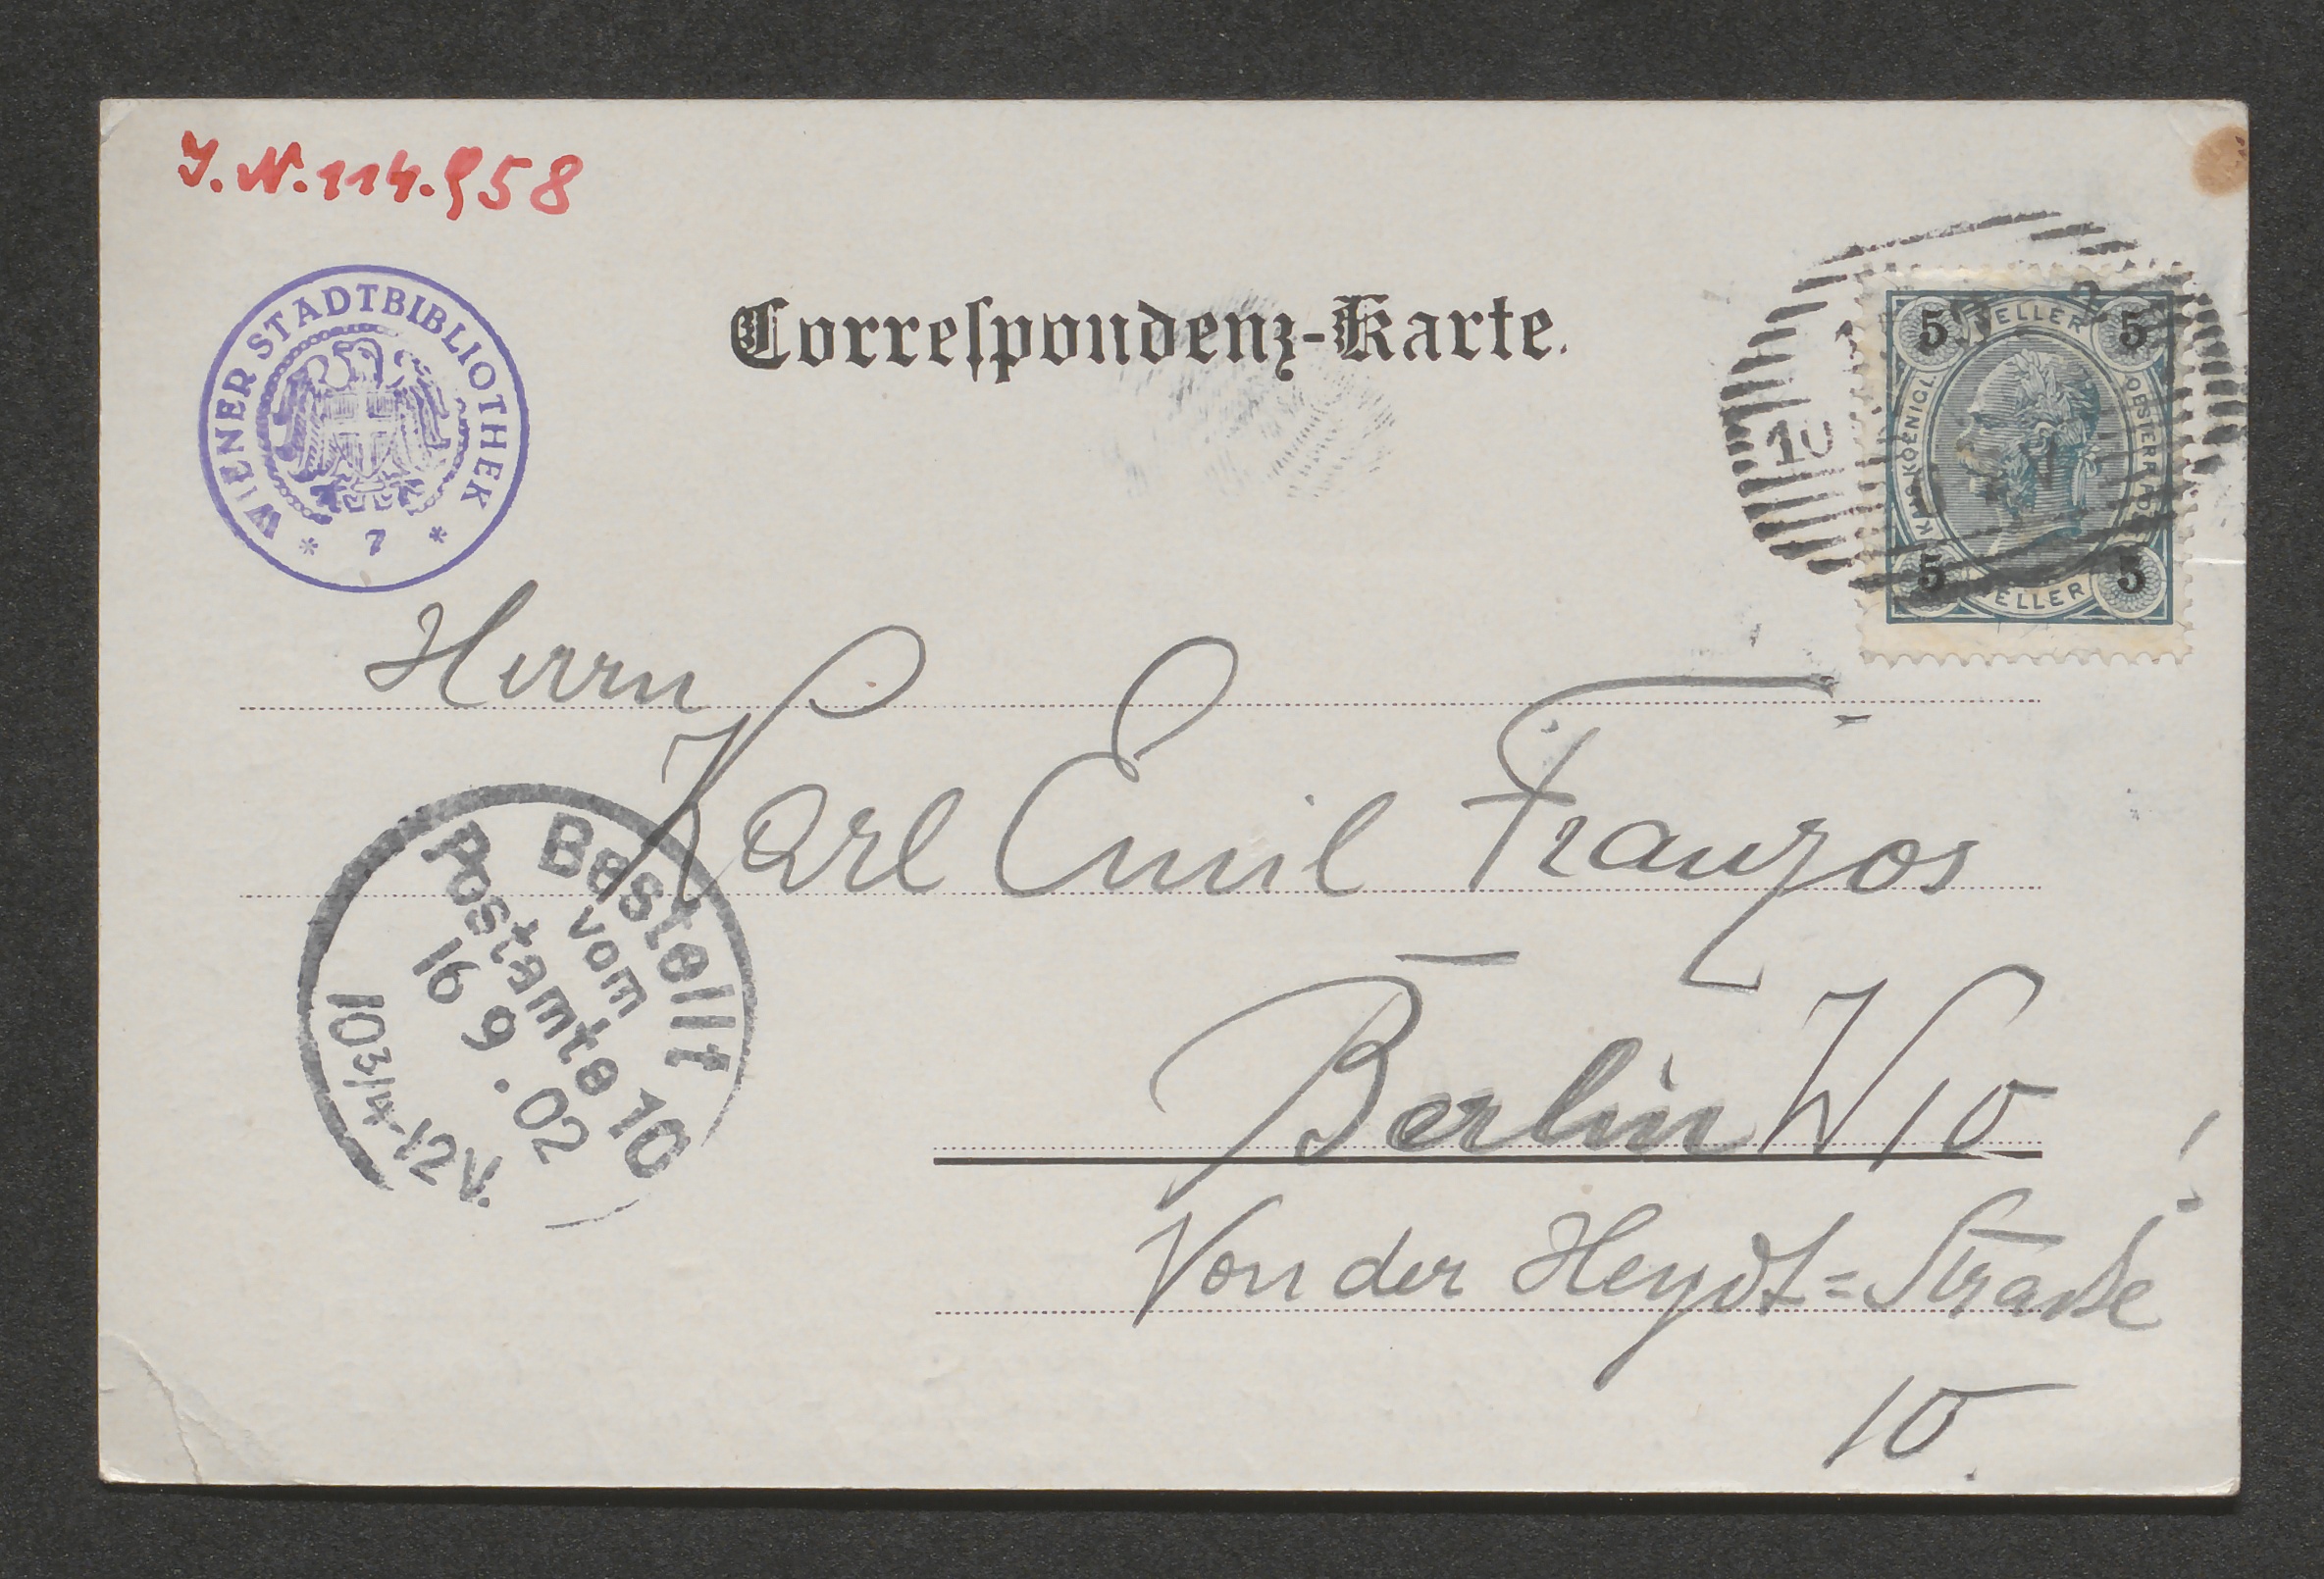 J.N. 114.958
WIENER STADTBIBLIOTHEK
* 7 *
Correſpondenz-Karte.
10
5 HELLER 5
KAIS. KÖNIGL. OESTERR. POST
5 HELLER 5
Herrn
Karl Emil Franzos
Bestellt
vom
Postamte 10
16 9. 02
10 3/4-12V.
Berlin W 10 !
Von der Heydt=Straße
10.